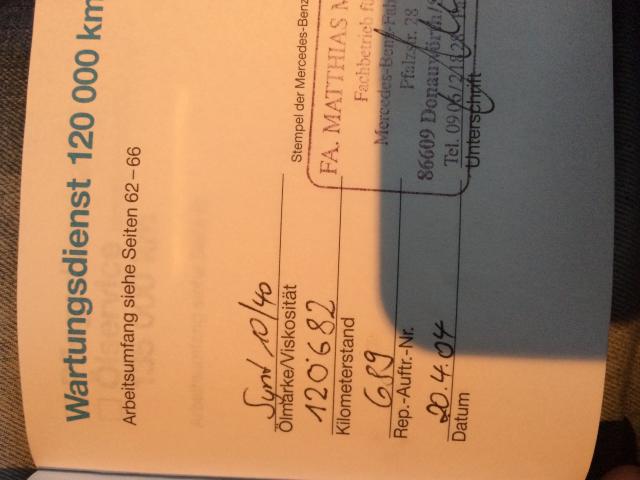 Wartungsdienst 120 000 km
Arbeitsumfang siehe Seiten 62–66
Synt 10/40
Ölmarke/Viskosität
120'682
Kilometerstand
689
Rep.-Auftr.-Nr.
20.4.04
Datum
Stempel der Mercedes-Benz
FA. MATTHIAS M
Fachbetrieb fü
Mercedes-Benz
Pfalzstr. 28
86609 Donauwörth/
Tel. 09 06/2 18 28
Unterschrift